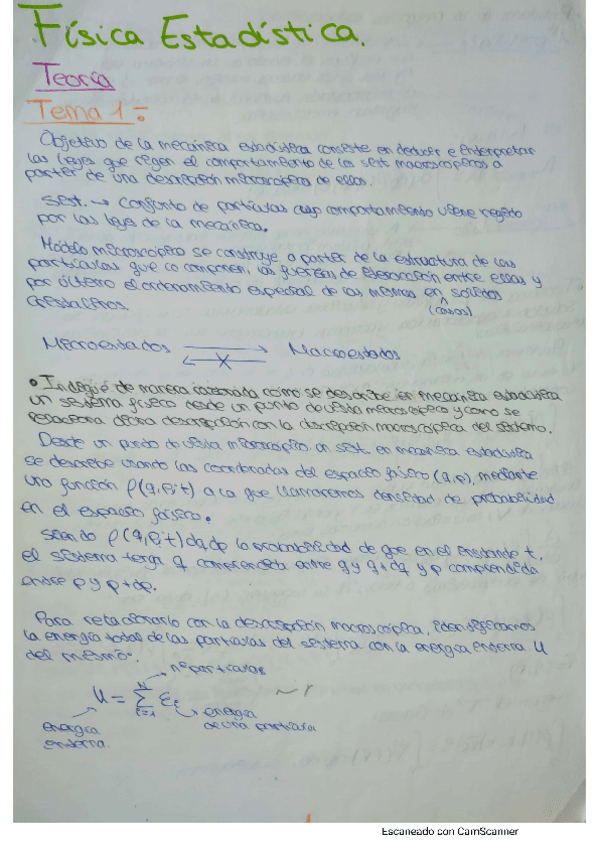 Física Estadística.
Teoría
Tema 1:
Objetivo de la mecánica estadística consiste en deducir e interpretar
las leyes que rigen el comportamiento de los sist. macroscópicos a
partir de una descripción microscópica de ellos.
Sist. → Conjunto de partículas cuyo comportamiento viene regido
por las leyes de la mecánica.
Modelo microscópico se construye a partir de la estructura de las
partículas que lo componen, las fuerzas de interacción entre ellas y
por último el ordenamiento espacial de las mismas en sólidos
(casos)
cristalinos.
Microestados Macroestados
• Indique de manera razonada cómo se describe en mecánica estadística
un sistema físico desde un punto de vista microscópico y como se
relaciona dicha descripción con la descripción macroscópica del sistema.
Desde un punto de vista microscópico, un sist. en mecánica estadística
se describe usando las coordenadas del espacio fásico (q,p), mediante
una función ρ(q,p;t) a la que llamaremos densidad de probabilidad
en el espacio fásico.
Siendo ρ(q,p;t)dqdp la probabilidad de que en el instante t,
el sistema tenga q comprendida entre q y q+dq y p comprendida
entre p y p+dp.
Para relacionarlo con la descripción macroscópica, identificamos
la energía total de las partículas del sistema con la energía interna U
del mismo.
nº partículas
U = Σ εi
N
i=1
energía
interna
energía
de una partícula
Escaneado con CamScanner